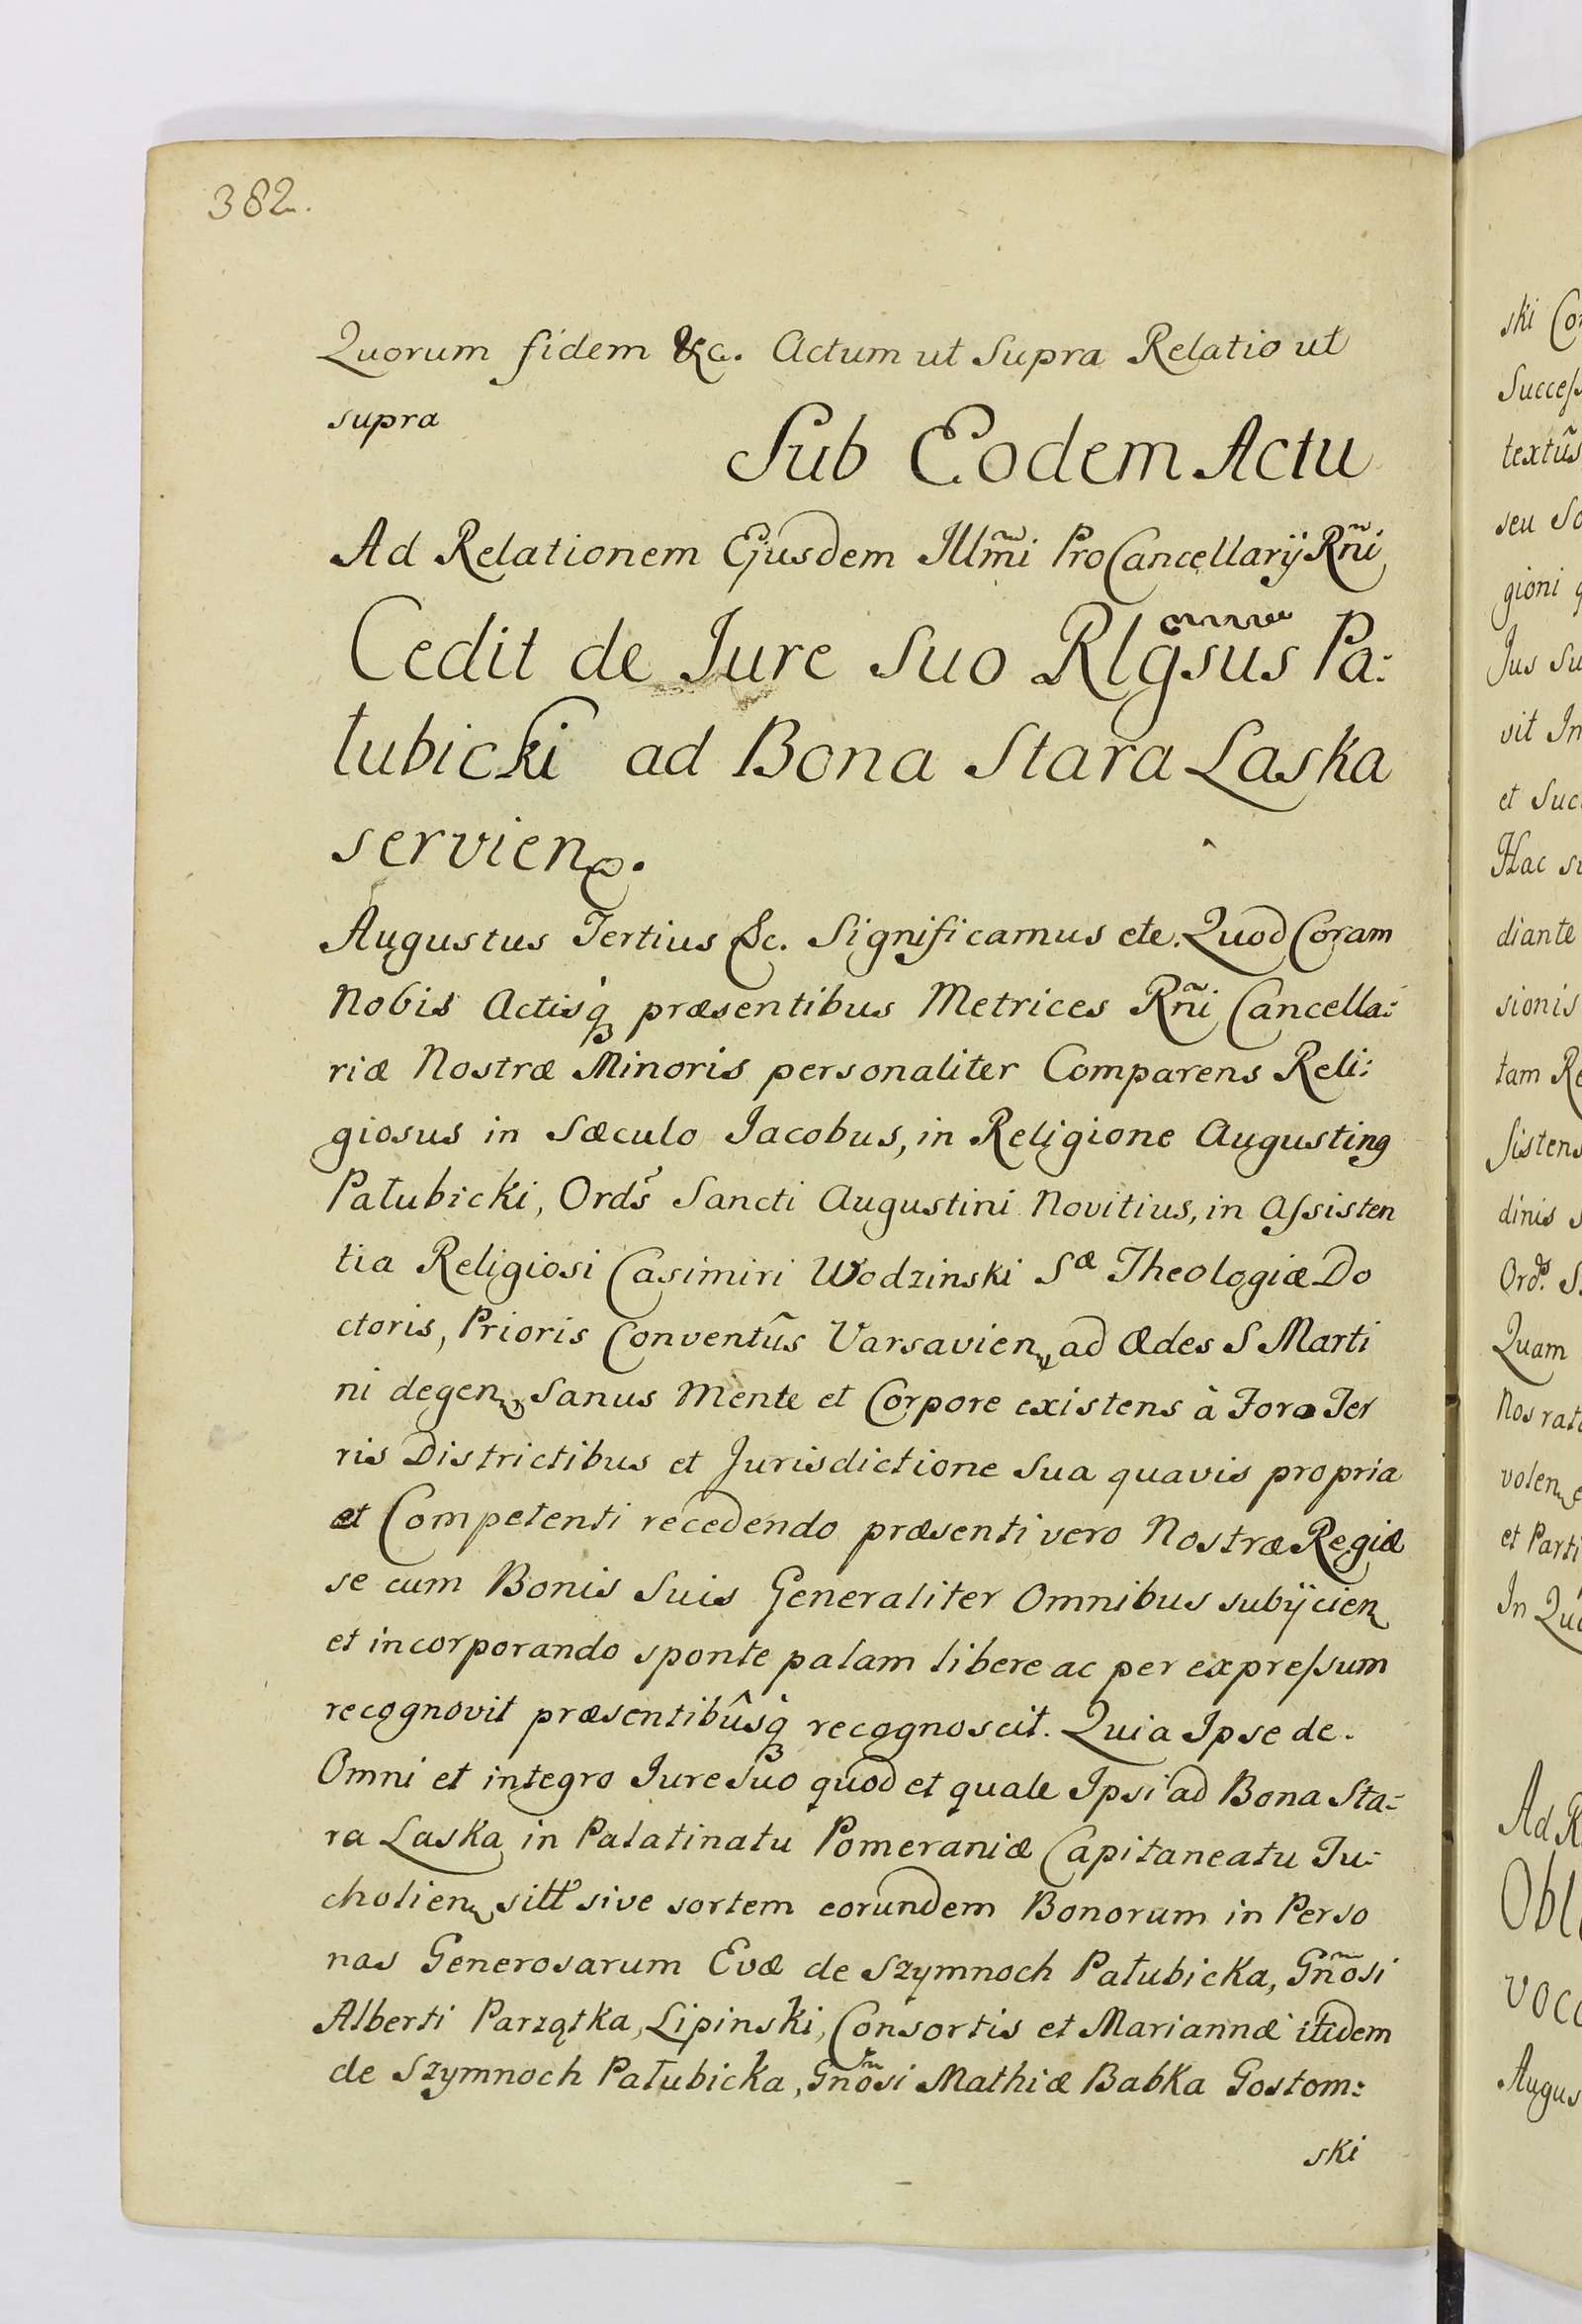 382.
Quorum fidem &c. Actum ut Supra Relatio ut
supra
Sub Eodem Actu
Ad Relationem Ejusdem Illm̃i ProCancellarij Rñi
Cedit de Jure Suo Rlg̃sus Pa:
łubicki ad Bona Stara Laska
servien.
Augustus Tertius &c. Significamus etc. Quod Coram
Nobis Actisq præsentibus Metrices Rñi Cancella:
riæ Nostræ Minoris personaliter Comparens Reli:
giosus in Sæculo Jacobus, in Religione Augustin9
Pałubicki, Ords Sancti Augustini Novitius, in Aſsisten
tia Religiosi Casimiri Wodzinski Sæ Theologiæ Do
ctoris, Prioris Conventûs Varsavien ad Ædes S Marti
ni degen Sanus Mente et Corpore existens à Foro Ter
ris Districtibus et Jurisdictione Sua quavis propria
et Competenti recedendo præsenti vero Nostræ Regiæ
se cum Bonis Suis Generaliter Omnibus subijcien
et incorporando sponte palam libere ac per expreſsum
recognovit præsentibûsq recognoscit. Quia Ipse de.
Omni et integro Jure Suo quod et quale Ipsi ad Bona Sta:
ra Laska in Palatinatu Pomeraniæ Capitaneatu Tu:
cholien sitt sive sortem eorundem Bonorum in Perso
nas Generosarum Evæ de Szymnoch Pałubicka, Gñosi
Alberti Parzątka, Lipinski, Consortis et Mariannæ itidem
de Szymnoch Pałubicka, Gñosi Mathiæ Babka Gostom:
ski
ski
Succeſs
textûs
seu
gioni
Jus
vit
et Suc
Hac
diante
sionis
tam
Sistens
dinis
Ords
Quam
Nos
volen
et Parti
In
Ad
Obl
voc
Augus